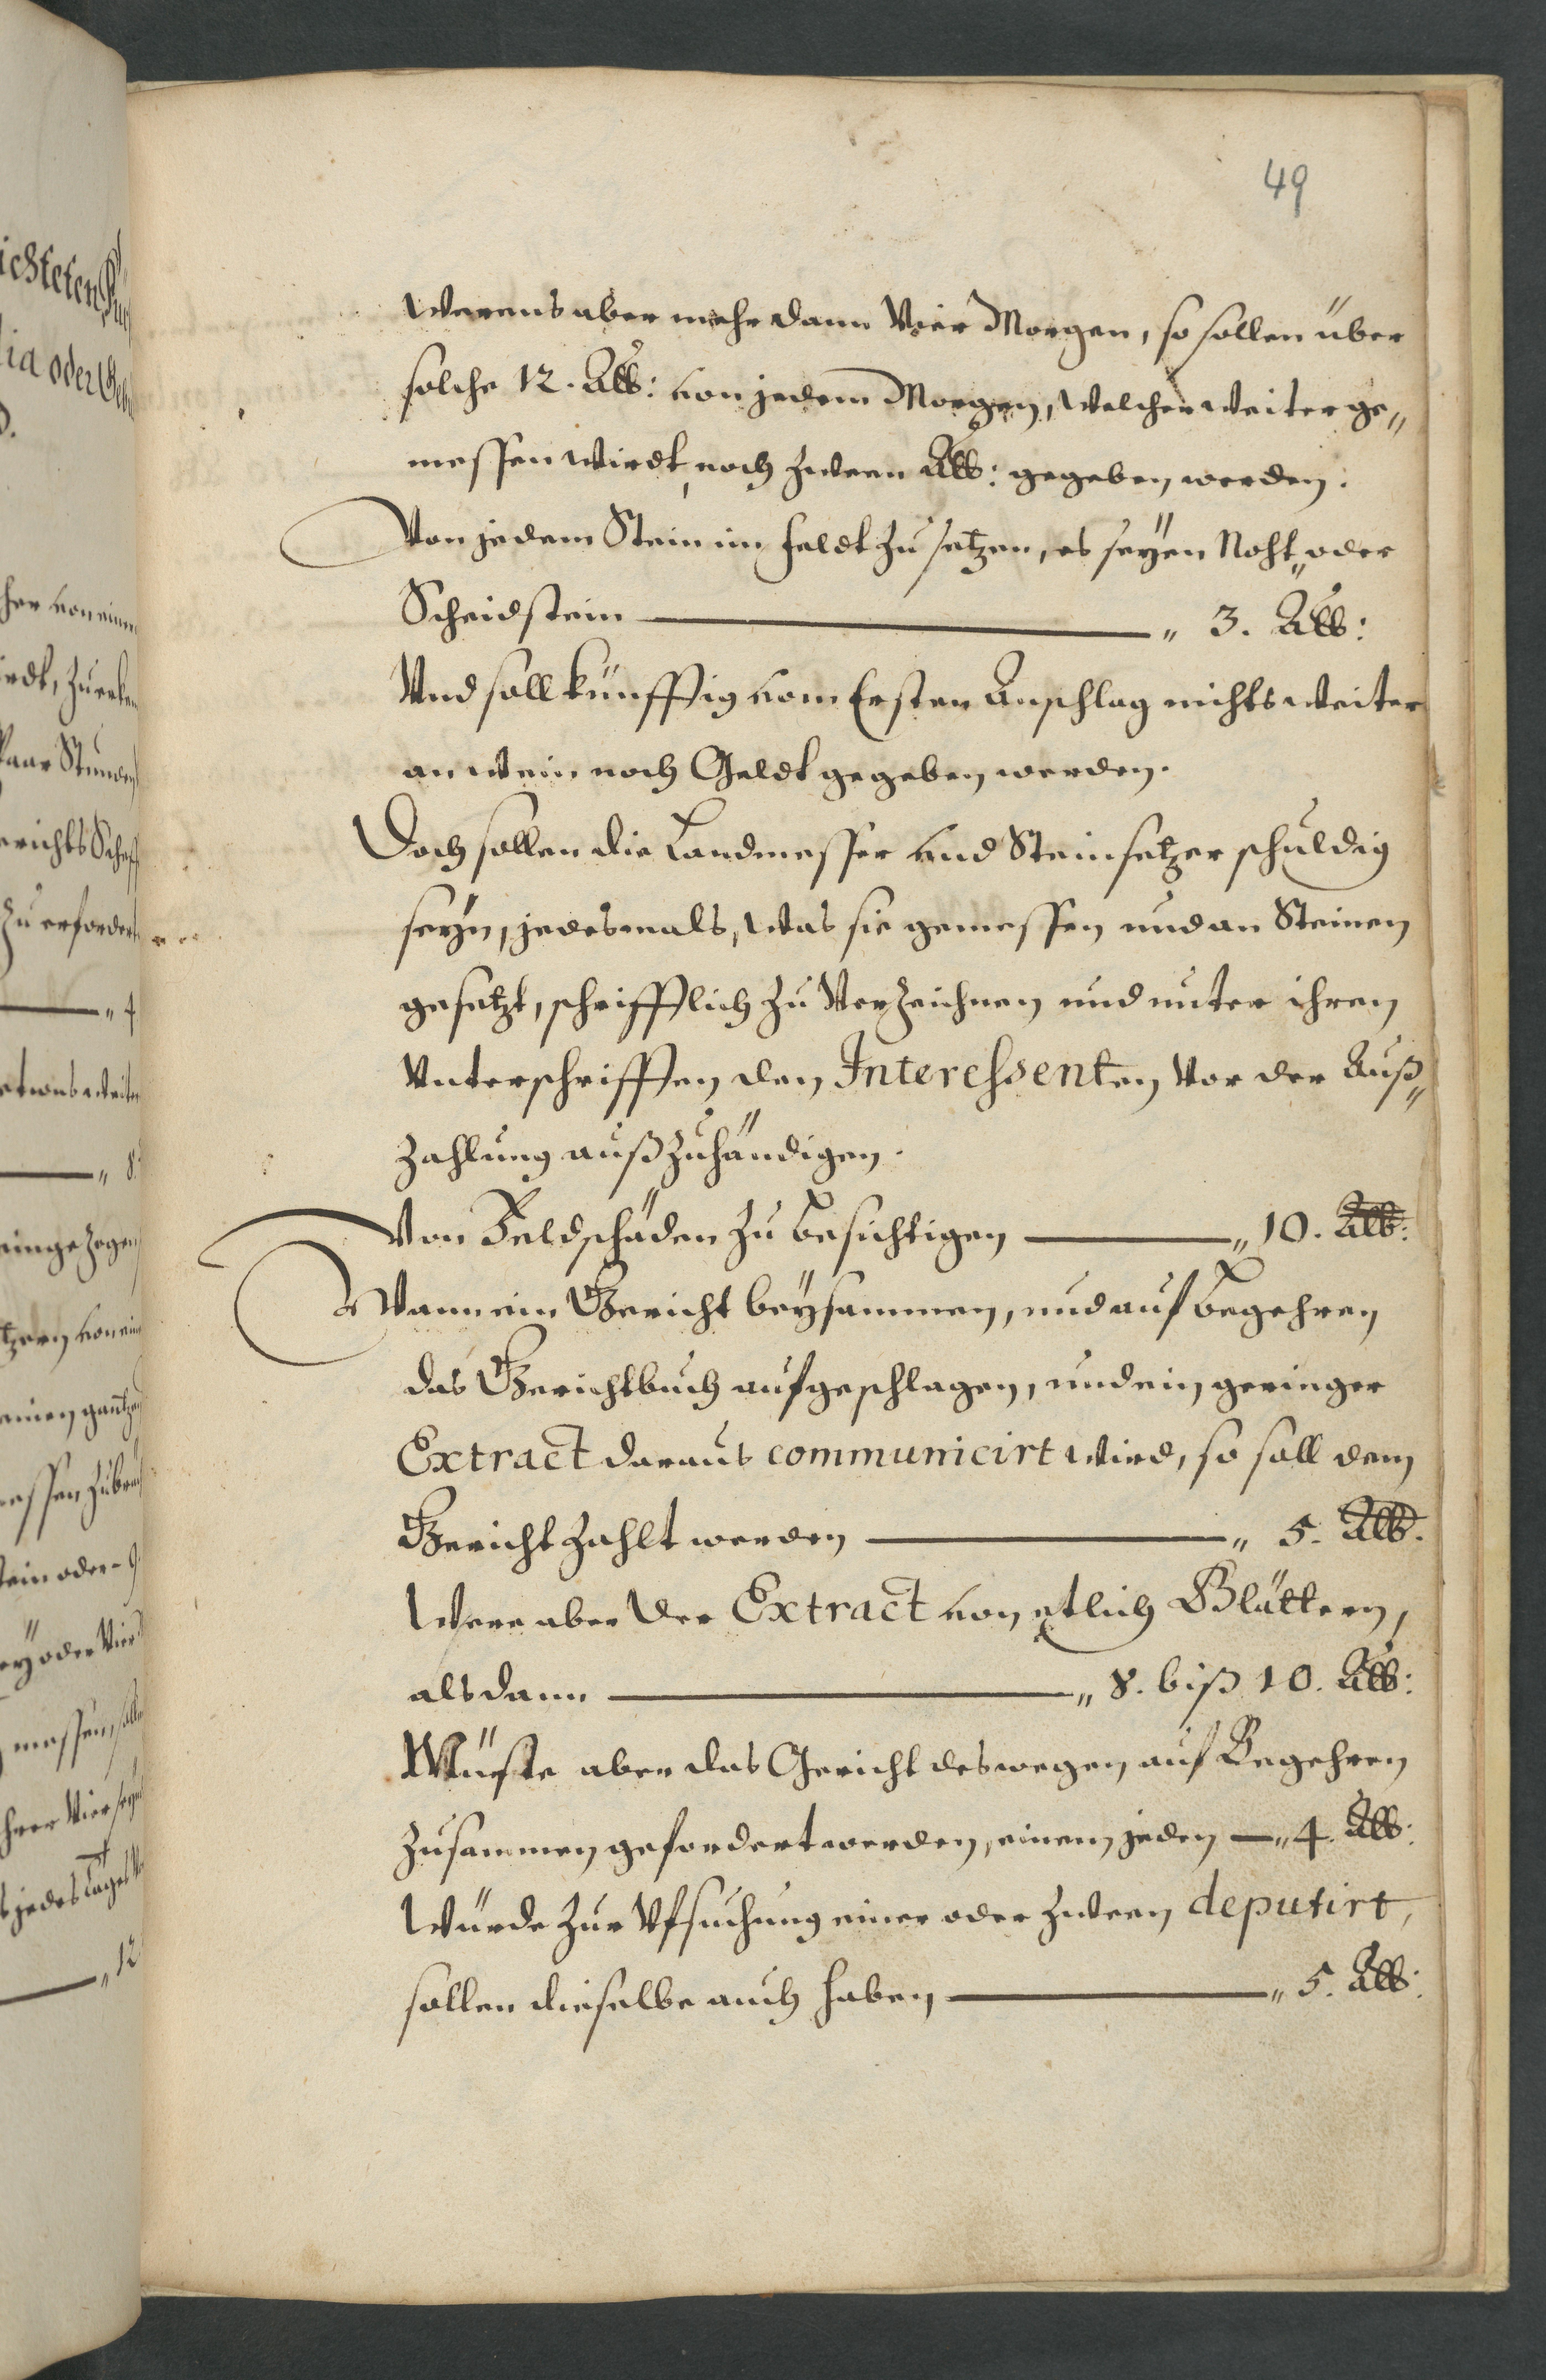 49
Werens aber mehr dann Vier Morgen, so sollen über
solche 12. Alb: von jedem Morgen, welcher weiter ge„
messen wirdt, noch zween Alb: gegeben werden.
Von jedem Stein im feldt zu setzen, es seÿen Noht„ oder
Scheidstein „ 3. Alb:
Vnd soll künfftig vom Ersten Anschlag nichts weiter
an wein noch Geldt gegeben werden.
Doch sollen die Landmesser vnd Steinsetzer schuldig
seyn, jedesmals, was sie gemessen und an Steinen
gesetzt, schrifftlich zu Verzeichnen und unter ihren
Unterschrifften den Interessenten vor der Auß„
zahlung außzuhändigen.
Von Feldschäden zu besichtigen „ 10. Alb:
Wann ein Gericht beÿsammen, und auf begehren
das Gerichtbuch aufgeschlagen, und ein geringer
Extract daraus communicirt wird, so soll dem
Gericht zahlt werden „ 5. Alb.
Were aber der Extract von etlich Blättern,
alsdann „ 8. biß 10. Alb:
Müste aber das Gericht deswegen auf Begehren
zusammen gefordert werden, einem jeden „ 4. Alb:
Würde zur Ufsuchung einer oder zween deputirt,
sollen dieselbe auch haben „ 5. Alb: